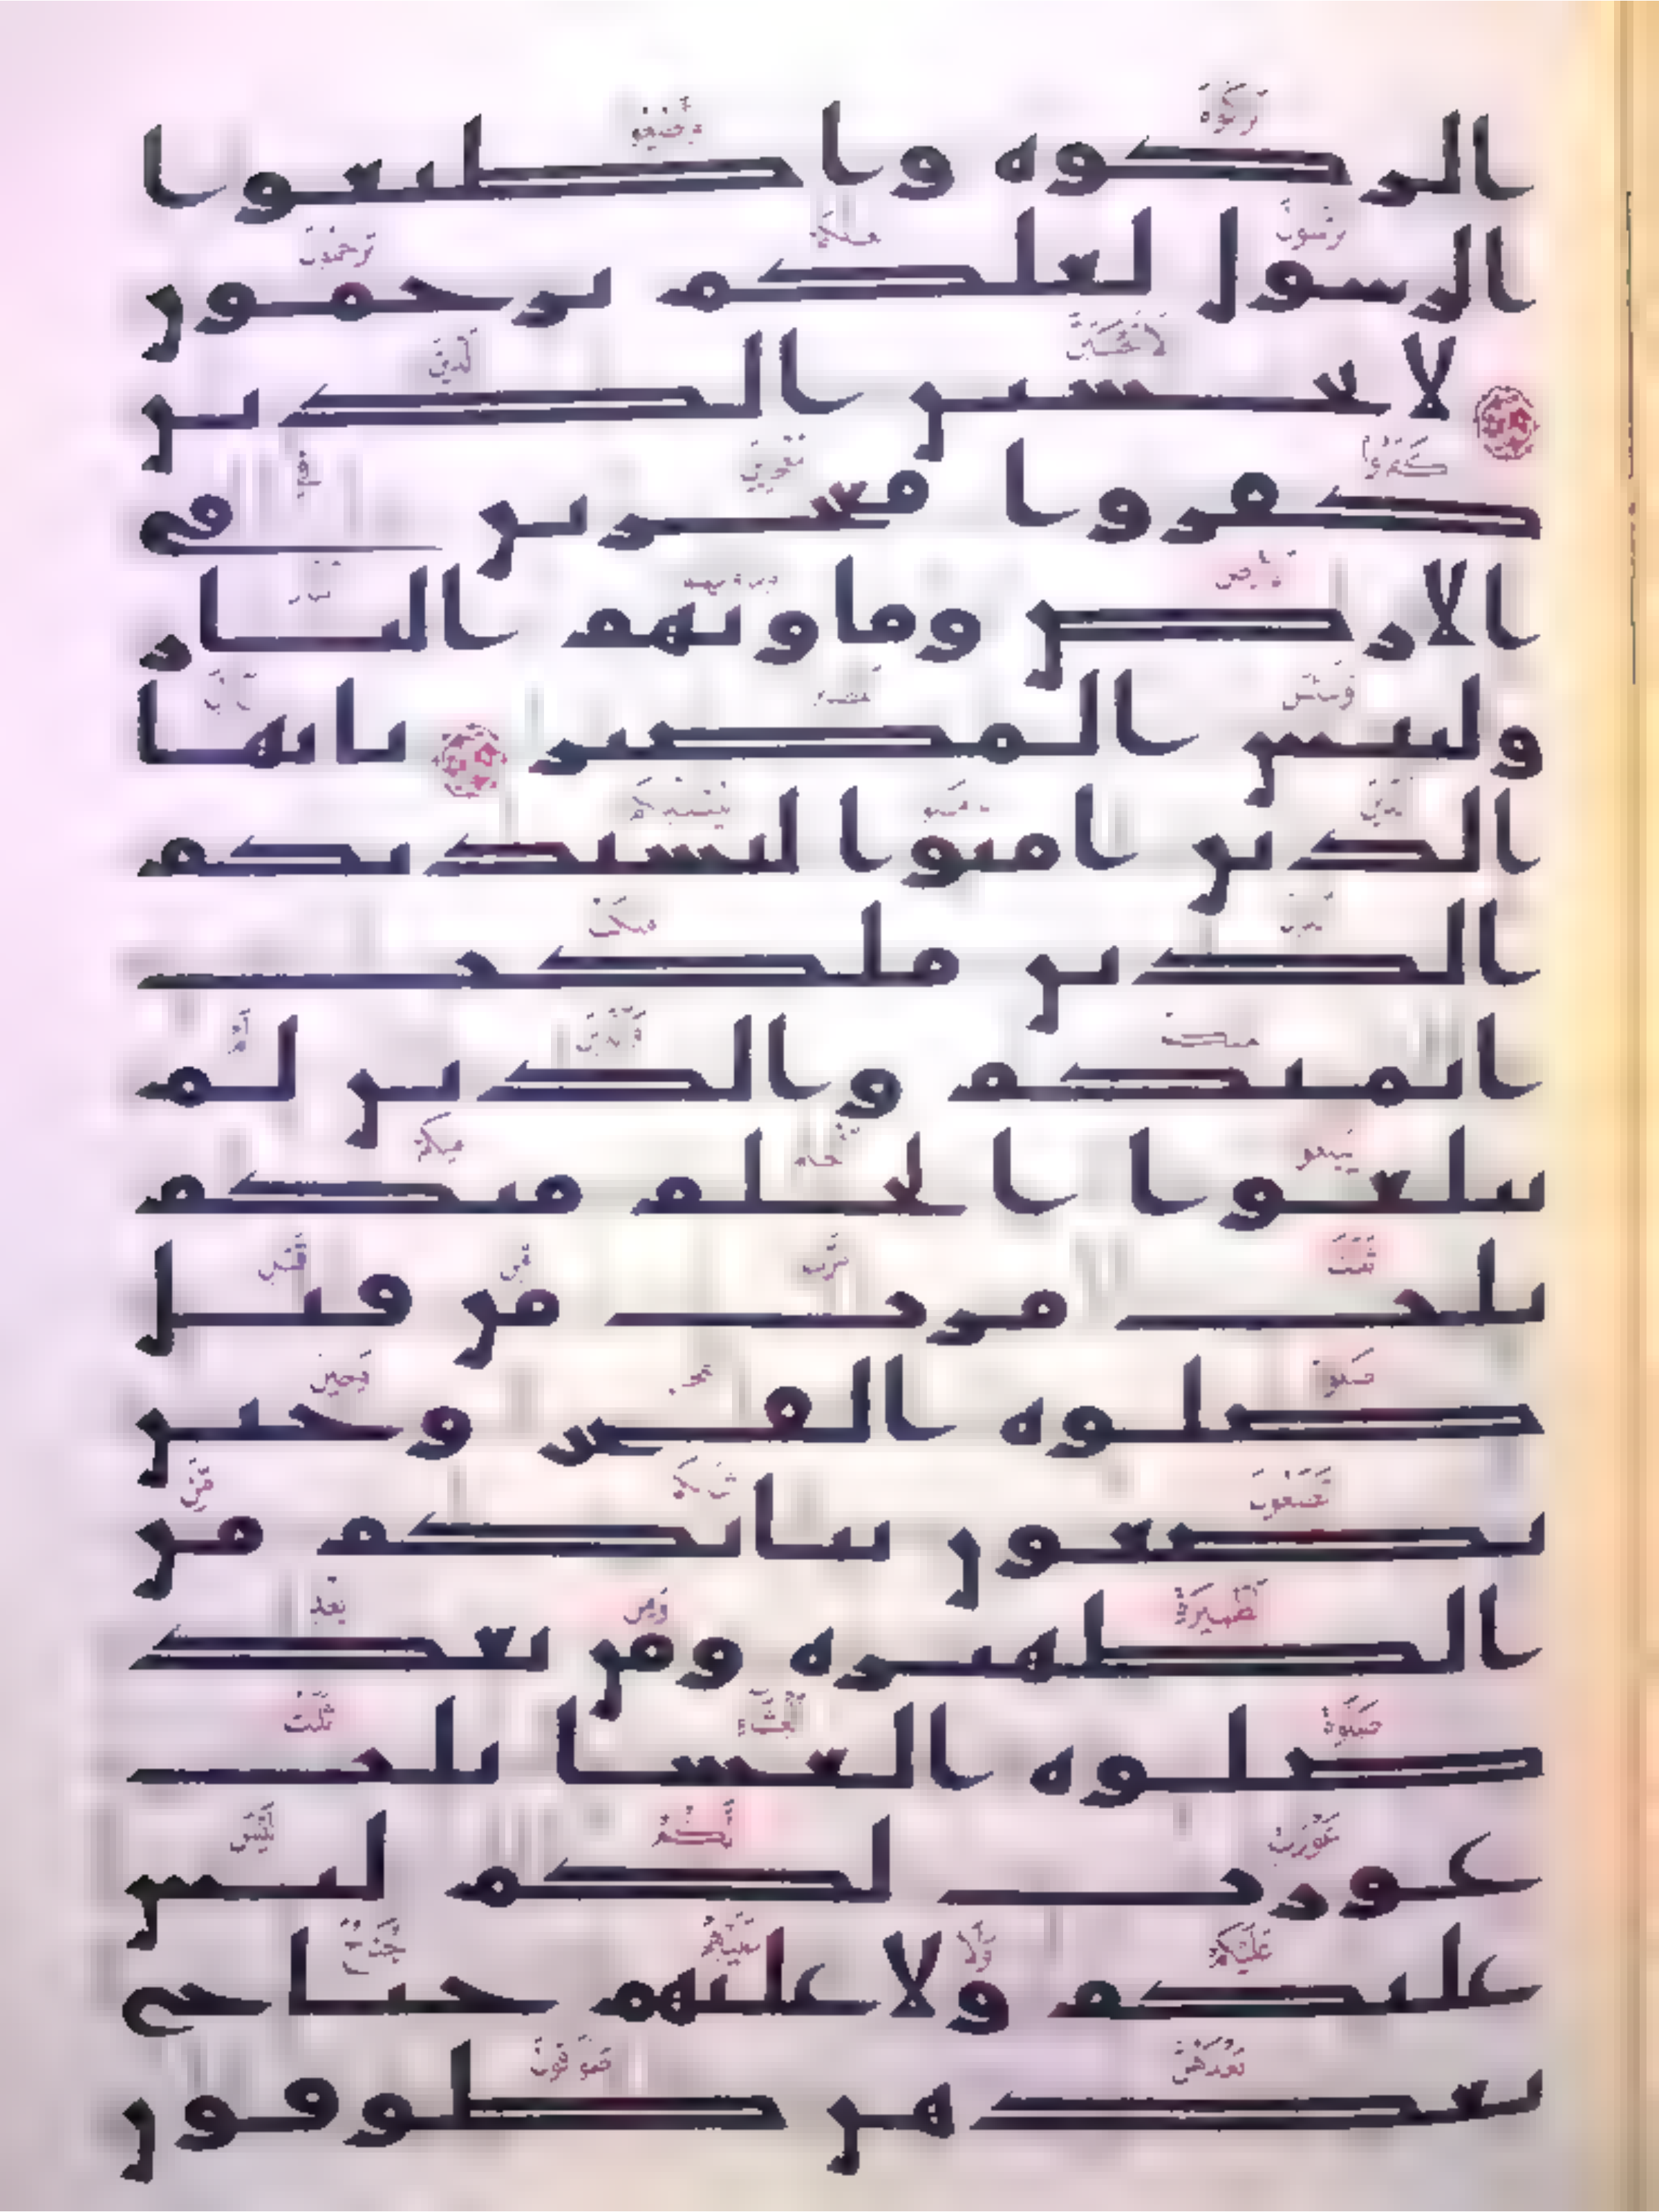 الزكوه واطيعوا
الرسول لعلكم ترحمون
لا تحسبن الذين
كفروا معجزين في
الارض وماويهم النار
ولبئس المصير يايها
الذين امنوا ليستذنكم
الذين ملكت
ايمنكم والذين لم
يبلغوا الحلم منكم
ثلث مرت من قبل
صلوه الفجر وحين
تضعون ثيابكم من
الظهيره ومن بعد
صلوه العشا ثلث
عورت لكم ليس
عليكم ولا عليهم جناح
بعدهن طوفون